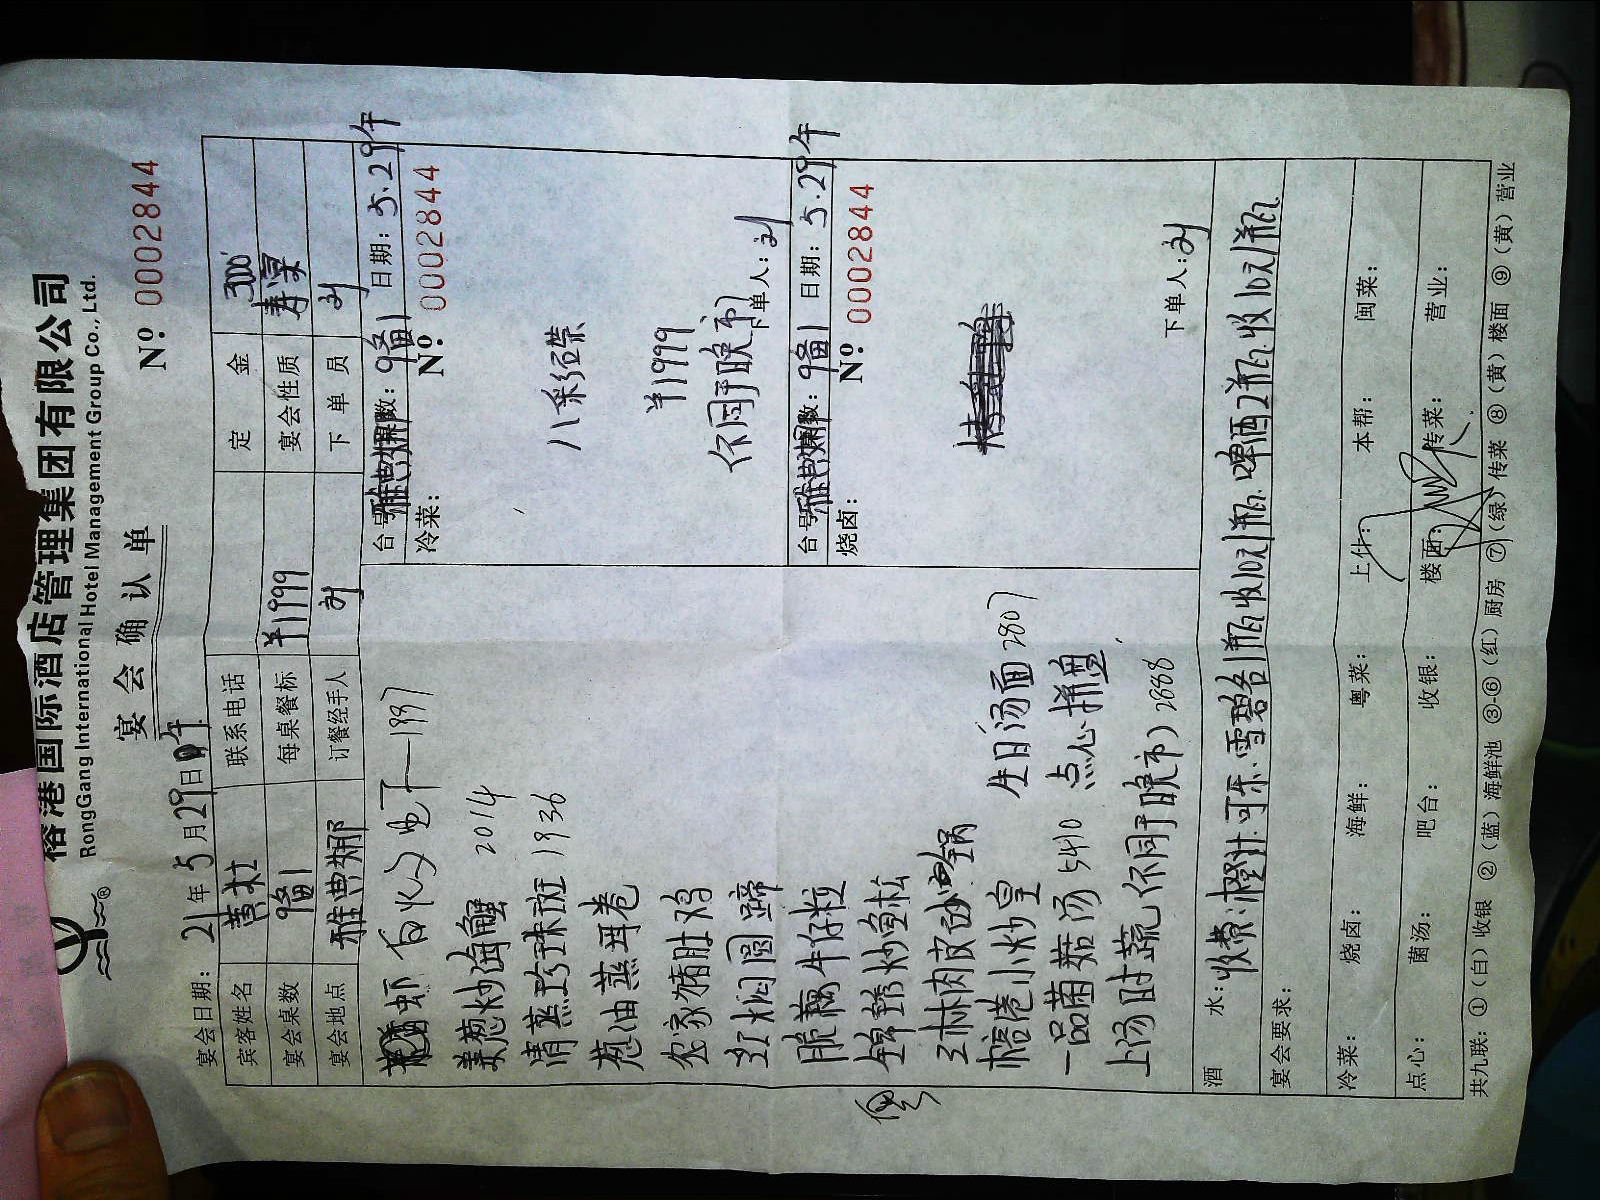 榕港国际酒店管理集团有限公司
RongGang International Hotel Management Group Co., Ltd.
宴会确认单
№ 0002844
宴会日期：21年5月29日午
宾客姓名 联系电话 定金 3000
宴会桌数 9备1 每桌餐标 ¥1999 宴会性质 寿宴
宴会地点 雅典娜 订餐经手人 刘 下单员 刘
台号 雅典娜 数：9备1 日期：5.29午
冷菜： № 0002844
八彩碟
¥1999
(不同于晚市)
下单人：刘
台号 雅典娜 数：9备1 日期：5.29午
烧卤： № 0002844
下单人：刘
虾
姜葱炒海蟹 2014
清蒸珍珠斑 1936
葱油蒸耳卷
农家猪肚鸡
红焖圆蹄
脆藕牛仔粒
锦绣炒鱼松
三林肉皮砂锅
榕港小炒皇 生日汤面 2807
一品菌菇汤 5410 点心拼盘
上汤时蔬 (不同于晚市) 2888
酒水：收费：橙汁.可乐.雪碧各1瓶收10元/瓶.啤酒2瓶收10元/瓶
宴会要求：
冷菜： 烧卤： 海鲜： 粤菜： 上什： 本帮： 闽菜：
点心： 菌汤： 吧台： 收银： 楼面： 传菜： 营业：
共九联：①（白）收银 ②（蓝）海鲜池 ③-⑥（红）厨房 ⑦（绿）传菜 ⑧（黄）楼面 ⑨（黄）营业